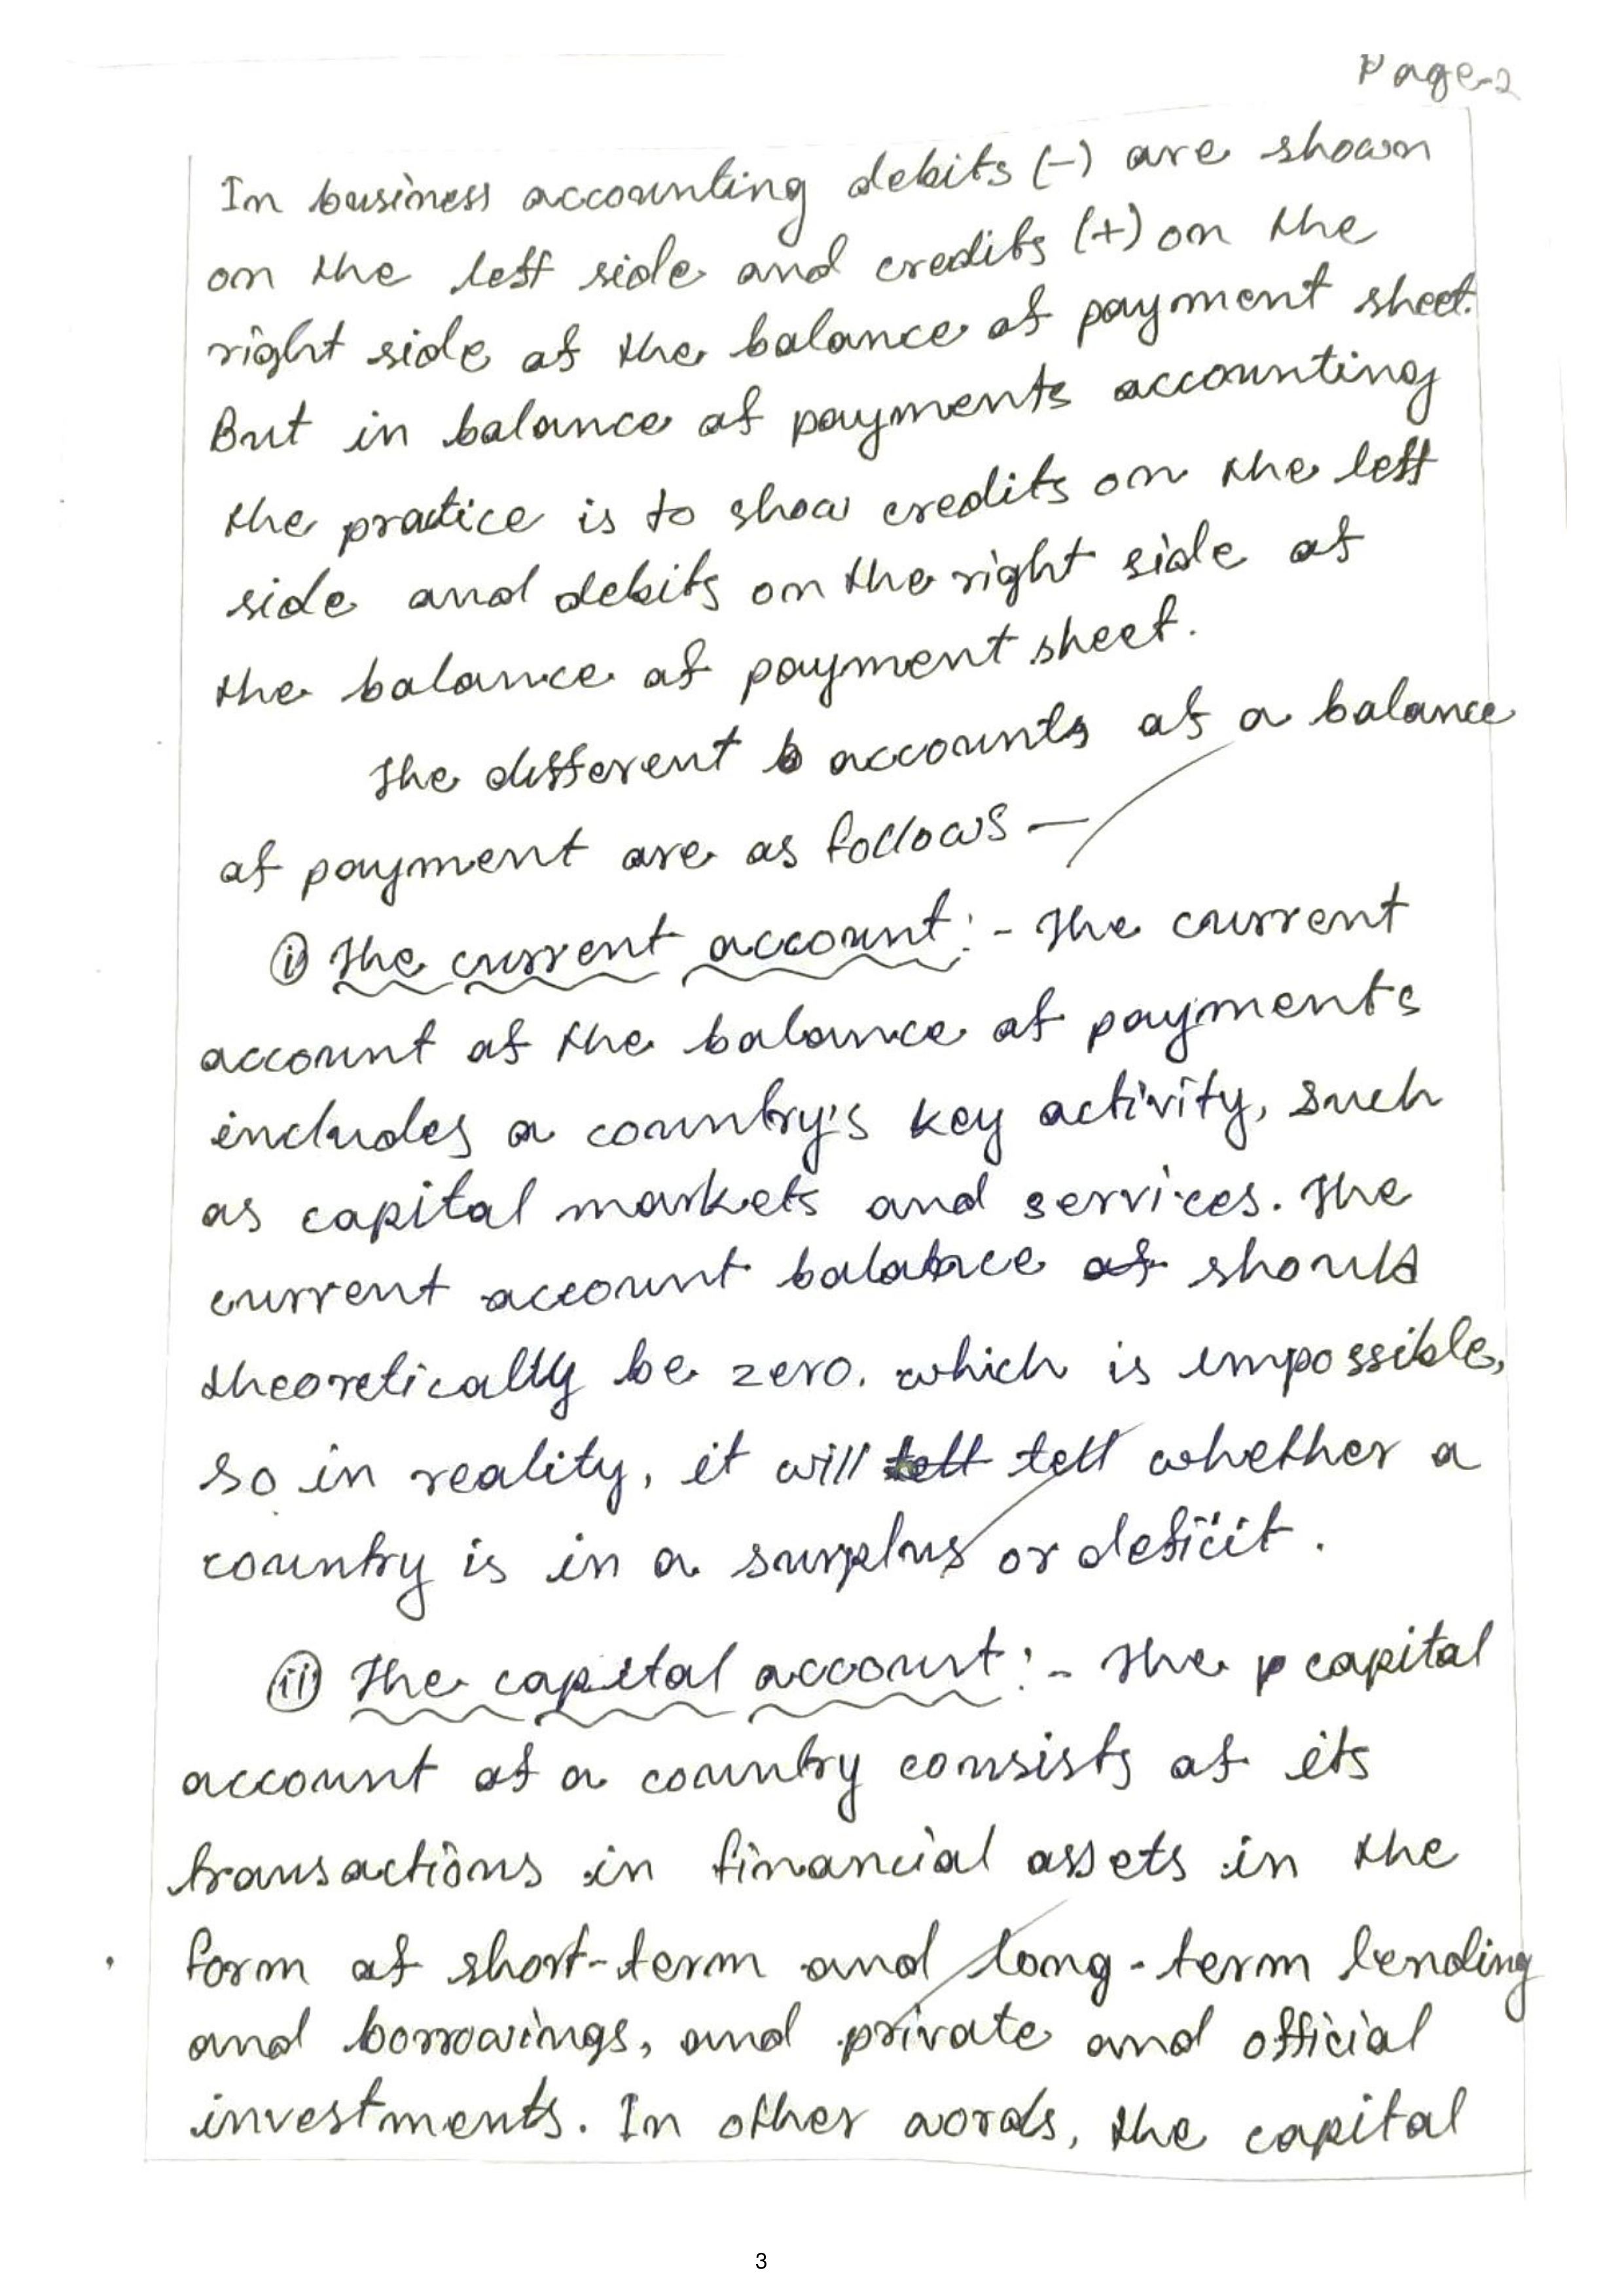 Page-2
In business accounting debits (-) are shown
on the left side and credits (+) on the
right side of the balance of payment sheet.
But in balance of payments accounting
the practice is to show credits on the left
side and debits on the right side of
the balance of payment sheet.
The different accounts of a balance
of payment are as follows —
(i) The current account :- The current
account of the balance of payments
includes a country's key activity, such
as capital markets and services. The
current account balance should
theoretically be zero. which is impossible,
so in reality, it will tell whether a
country is in a surplus or deficit.
(ii) The capital account :- The capital
account of a country consists of its
transactions in financial assets in the
form of short-term and long-term lending
and borrowings, and private and official
investments. In other words, the capital
3